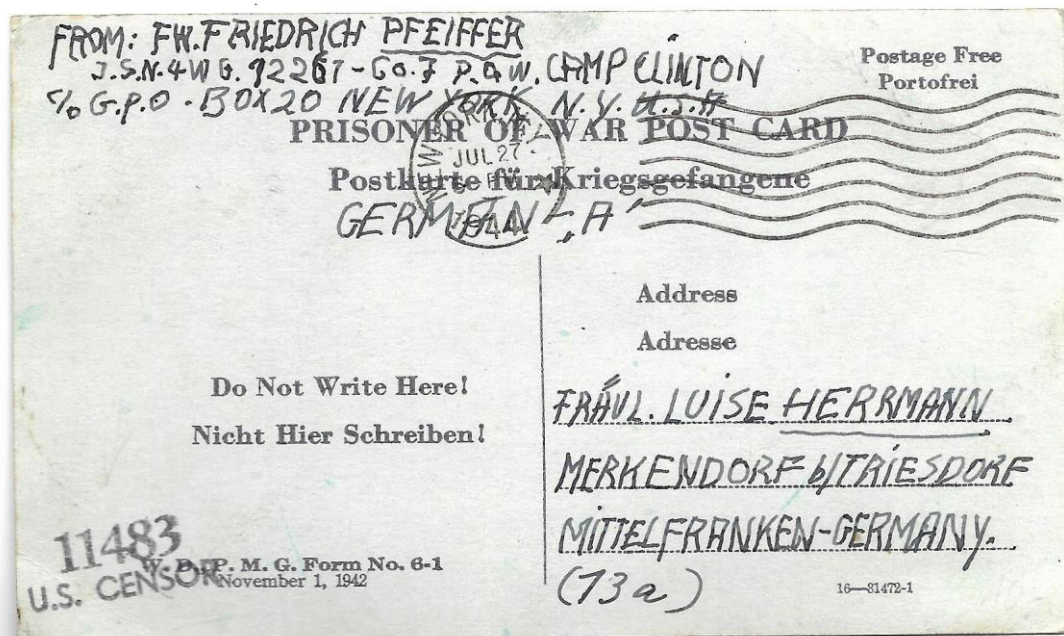 FROM: FW. FRIEDRICH PFEIFFER
J.S.N. 4WG. 92267 - Co. 7 P.O.W. CAMP CLINTON
c/o G.P.O. - BOX 20 NEW YORK N.Y. U.S.A
Postage Free
Portofrei
PRISONER OF WAR POST CARD
JUL 27
Postkarte für Kriegsgefangene
GERMAN - „A"
Address
Adresse
Do Not Write Here!
Nicht Hier Schreiben!
FRÄUL. LUISE HERRMANN
MERKENDORF b/TRIESDORF
MITTELFRANKEN-GERMANY.
(13a)
11483
U.S. CENSOR
W. D., P. M. G. Form No. 6-1
November 1, 1942
16—31472-1